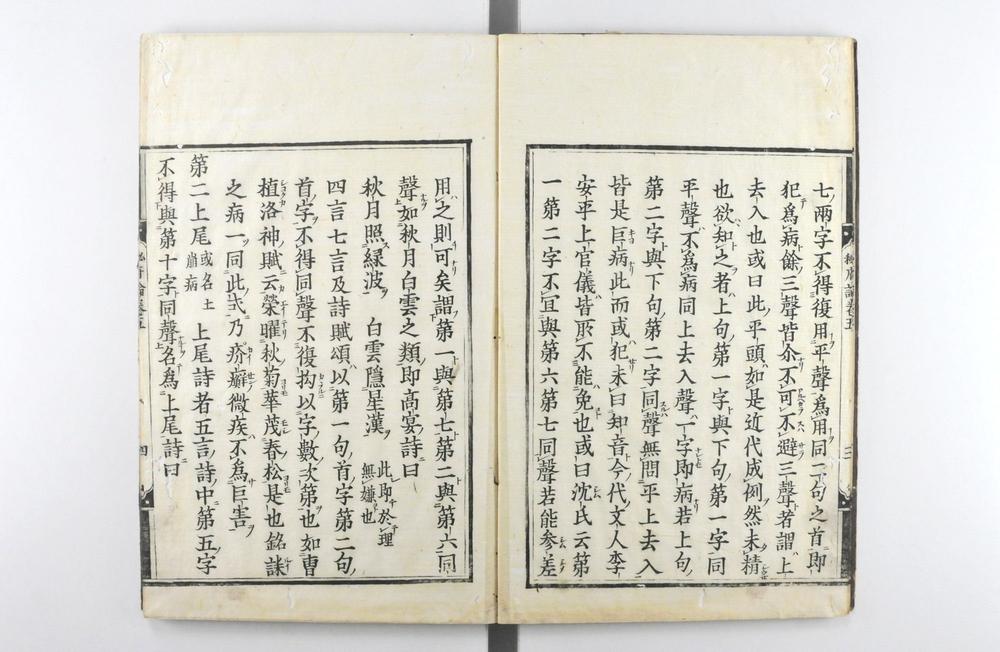 七兩字不得復用平聲爲用同二句之首即
犯爲病餘三聲皆尒不可不避三聲者謂上
去入也或曰此平頭如是近代成例然未精
也欲知之者上句第一字與下句第一字同
平聲不爲病同上去入聲一字即病若上句
第二字與下句第二字同聲無問平上去入
皆是巨病此而或犯未曰知音今代文人李
安平上官儀皆所不能免也或曰沈氏云第
一第二字不宜與第六第七同聲若能參差
用之則可矣謂第一與第七第二與第六同
聲如秋月白雲之類即高宴詩曰
秋月照綠波 白雲隱星漢 此即於理無嫌也
四言七言及詩賦頌以第一句首字第二句
首字不得同聲不復拘以字數次第也如曹
植洛神賦云榮曜秋菊華茂春松是也銘誄
之病一同此式乃疥癬微疾不爲巨害
第二上尾 或名土崩病 上尾詩者五言詩中第五字
不得與第十字同聲名爲上尾詩曰